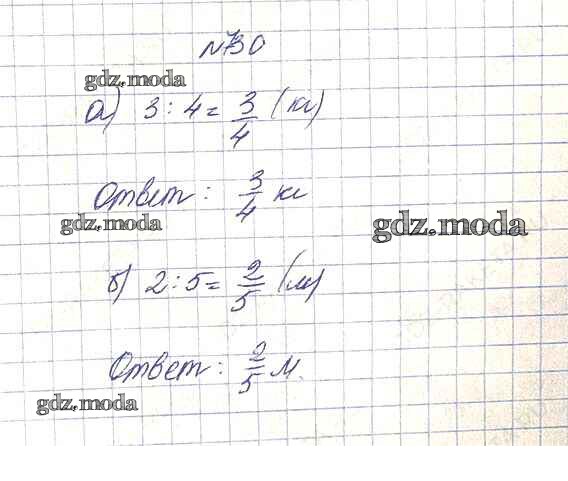 №730
gdz.moda
а) 3 : 4 = 3/4 (кг)
Ответ : 3/4 кг
gdz.moda
gdz.moda
б) 2 : 5 = 2/5 (м)
Ответ : 2/5 м.
gdz.moda